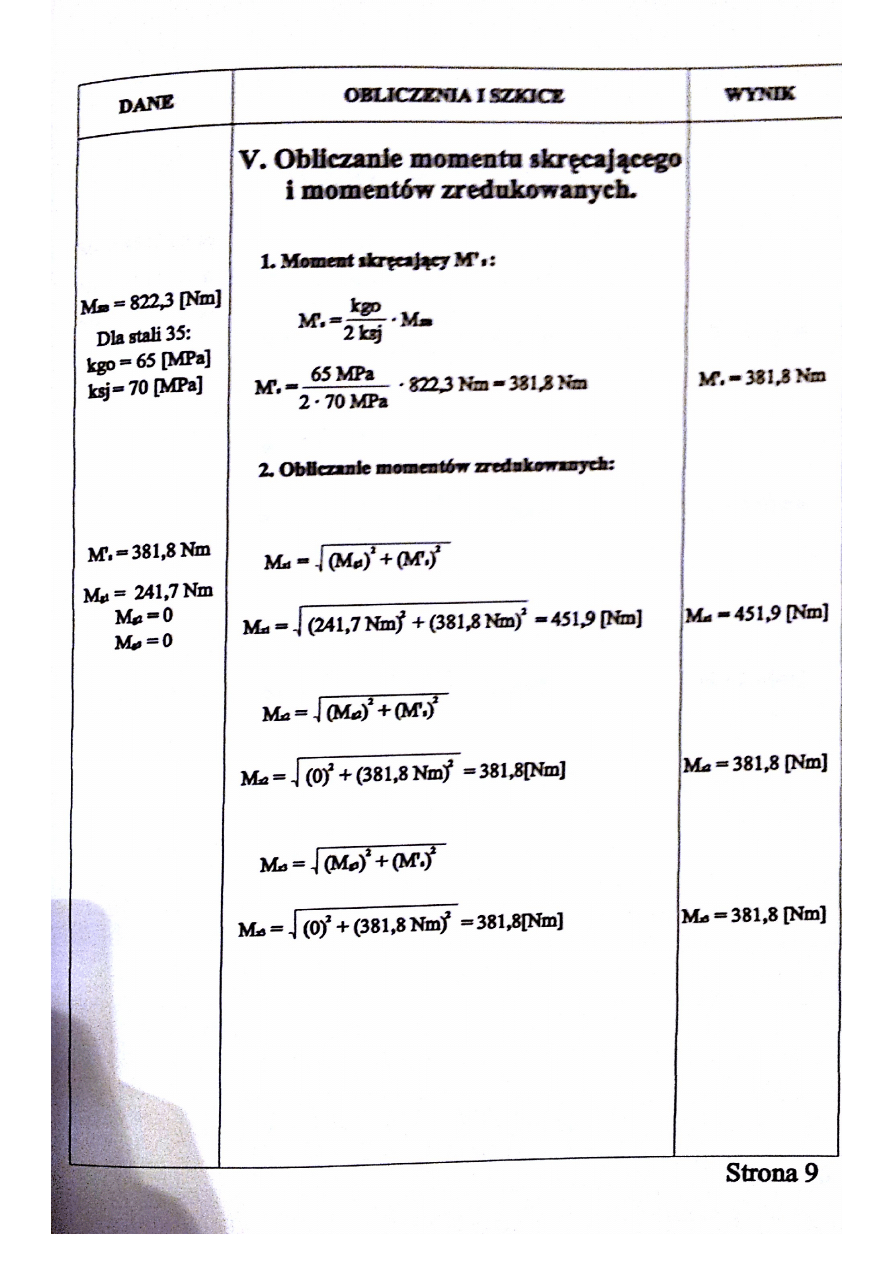 DANE
OBLICZENIA I SZKICE
WYNIK
V. Obliczanie momentu skręcającego
i momentów zredukowanych.
1. Moment skręcający M'ₛ:
= 822,3 [Nm]
Dla stali 35:
kgo = 65 [MPa]
ksj = 70 [MPa]
M'ₛ = kgo / 2 ksj ·
M'ₛ = 65 MPa / 2 · 70 MPa · 822,3 Nm = 381,8 Nm
M'ₛ = 381,8 Nm
2. Obliczanie momentów zredukowanych:
M'ₛ = 381,8 Nm
= 241,7 Nm
= 0
= 0
= √ ( )² + (M'ₛ)²
= √ (241,7 Nm)² + (381,8 Nm)² = 451,9 [Nm]
= 451,9 [Nm]
= √ ( )² + (M'ₛ)²
= √ (0)² + (381,8 Nm)² = 381,8[Nm]
= 381,8 [Nm]
= √ ( )² + (M'ₛ)²
= √ (0)² + (381,8 Nm)² = 381,8[Nm]
= 381,8 [Nm]
Strona 9